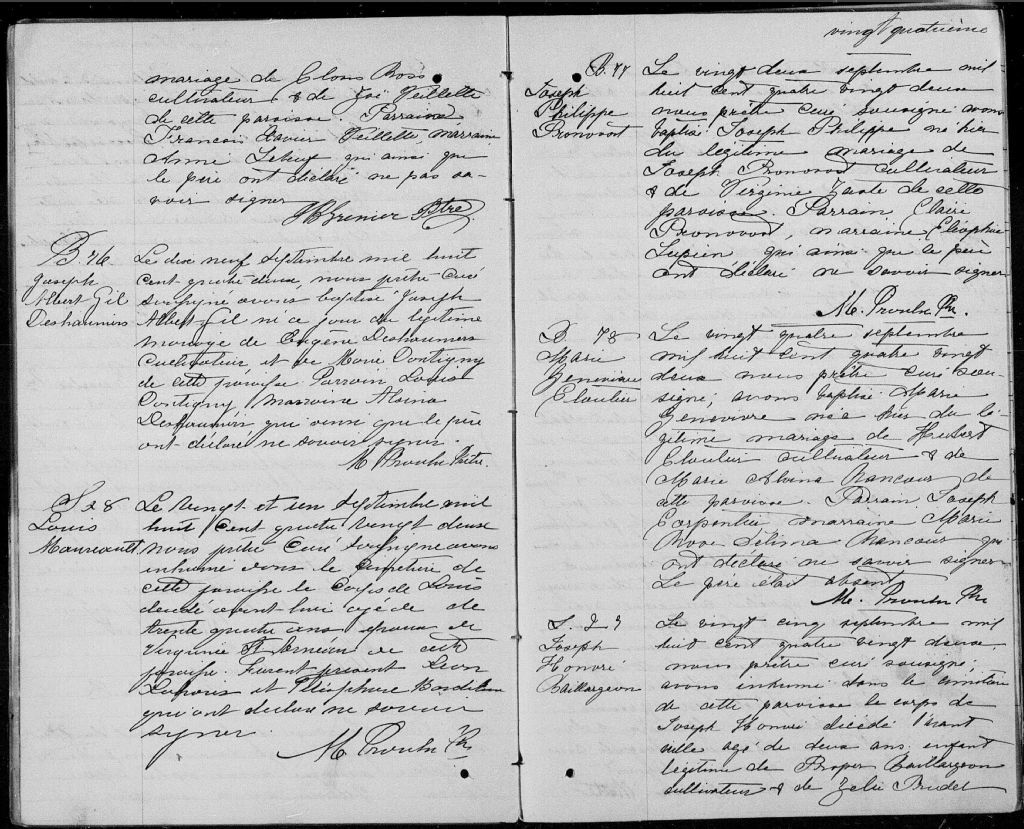 mariage de Clovis Ross
cultivateur & de Zoé Veillette
de cette paroisse. Parrain
Francois Xavier Veillette marraine
Anne qui ainsi que
le père ont déclaré ne pas sa-
voir signer
Grenier Ptre.
B. 76.
Joseph
Albert Gil
Deshaumiers
Le dix neuf Septembre mil huit
cent quatre deux, nous prêtre Curé
soussigne avons baptisé Joseph
Albert Gil né ce jour du legitime
mariage de Eugène Deshaumiers
Cultivateur, et de Marie Contigny
de cette paroisse Parrain Louis
Contigny Marraine
Deshaumiers qui ainsi que le père
ont déclaré ne savoir signer.
M Proulx Ptre.
S 28
Louis
Le vingt et un Septembre mil
huit Cent quatre vingt deux
nous prêtre Curé soussigne avons
inhumé dans le Cimetière de
cette paroisse le Corps de Louis
décédé avant hier agé de
trente quatre ans époux de
Virginie de cette
paroisse. Furent présent Léon
et Téléphore
qui ont déclaré ne savoir
signer.
M Proulx Ptr
vingt quatrième
B. 77
Joseph
Philippe
Pronovost
Le vingt deux septembre mil
huit cent quatre vingt deux
nous prêtre curé sousigné avons
baptisé Joseph Philippe né hier
du légitime mariage de
Joseph Pronovost cultivateur
& de Virginie de cette
paroisse. Parrain Claire
Pronovost, marraine Cléophie
Lupien, qui ainsi que le père
ont déclaré ne savoir signer
M. Proulx Ptr.
B 78
Marie
Genevieve
Cloutier
Le vingt quatre septembre
mil huit cent quatre vingt
deux nous prêtre curé sou-
signé, avons baptisé Marie
Genevieve née hier du lé-
gitime mariage de Hubert
Cloutier cultivateur & de
Marie Alvina Rancour de
cette paroisse. Parrain Joseph
Carpentier marraine Marie
Rose Délima Rancour qui
ont déclaré ne savoir signer
Le père était absent
M. Proulx Ptr
S. 29
Joseph
Honoré
Baillargeon
Le vingt cinq septembre mil
huit cent quatre vingt deux,
nous prêtre curé sousigné,
avons inhumé dans le cimetière
de cette paroisse le corps de
Joseph Honoré décédé l'avant
veille agé de deux ans enfant
légitime de Prosper Baillargeon
cultivateur & de Zélie Brudel